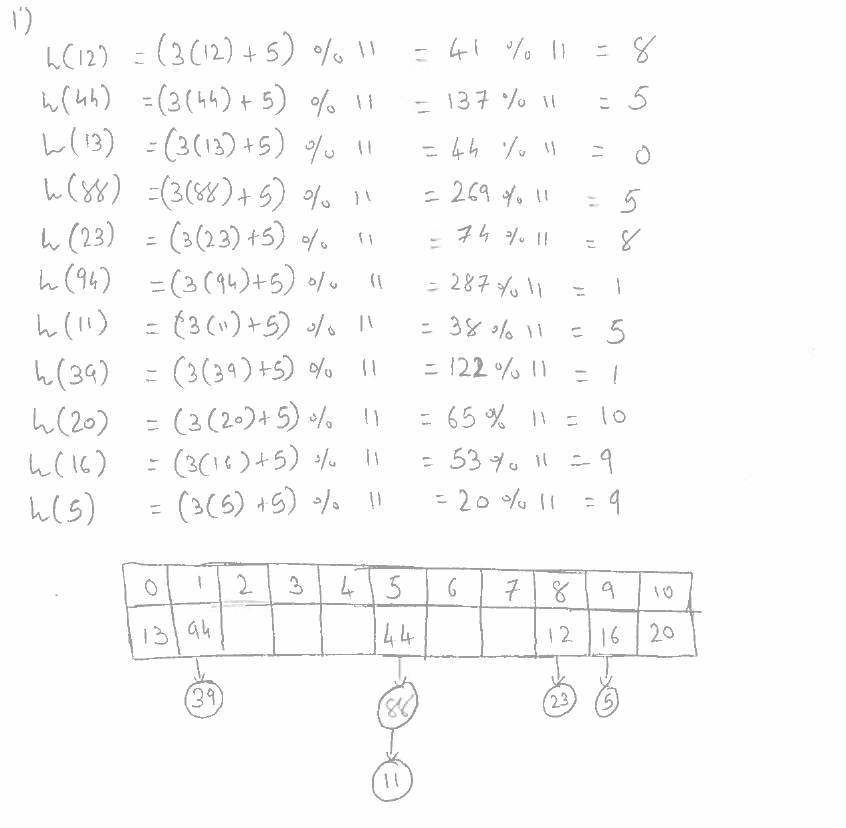 1)
h(12) = (3(12) + 5) % 11 = 41 % 11 = 8
h(44) = (3(44) + 5) % 11 = 137 % 11 = 5
h(13) = (3(13) + 5) % 11 = 44 % 11 = 0
h(88) = (3(88) + 5) % 11 = 269 % 11 = 5
h(23) = (3(23) + 5) % 11 = 74 % 11 = 8
h(94) = (3(94) + 5) % 11 = 287 % 11 = 1
h(11) = (3(11) + 5) % 11 = 38 % 11 = 5
h(39) = (3(39) + 5) % 11 = 122 % 11 = 1
h(20) = (3(20) + 5) % 11 = 65 % 11 = 10
h(16) = (3(16) + 5) % 11 = 53 % 11 = 9
h(5) = (3(5) + 5) % 11 = 20 % 11 = 9
0 1 2 3 4 5 6 7 8 9 10
13 94 44 12 16 20
39 88 23 5
11